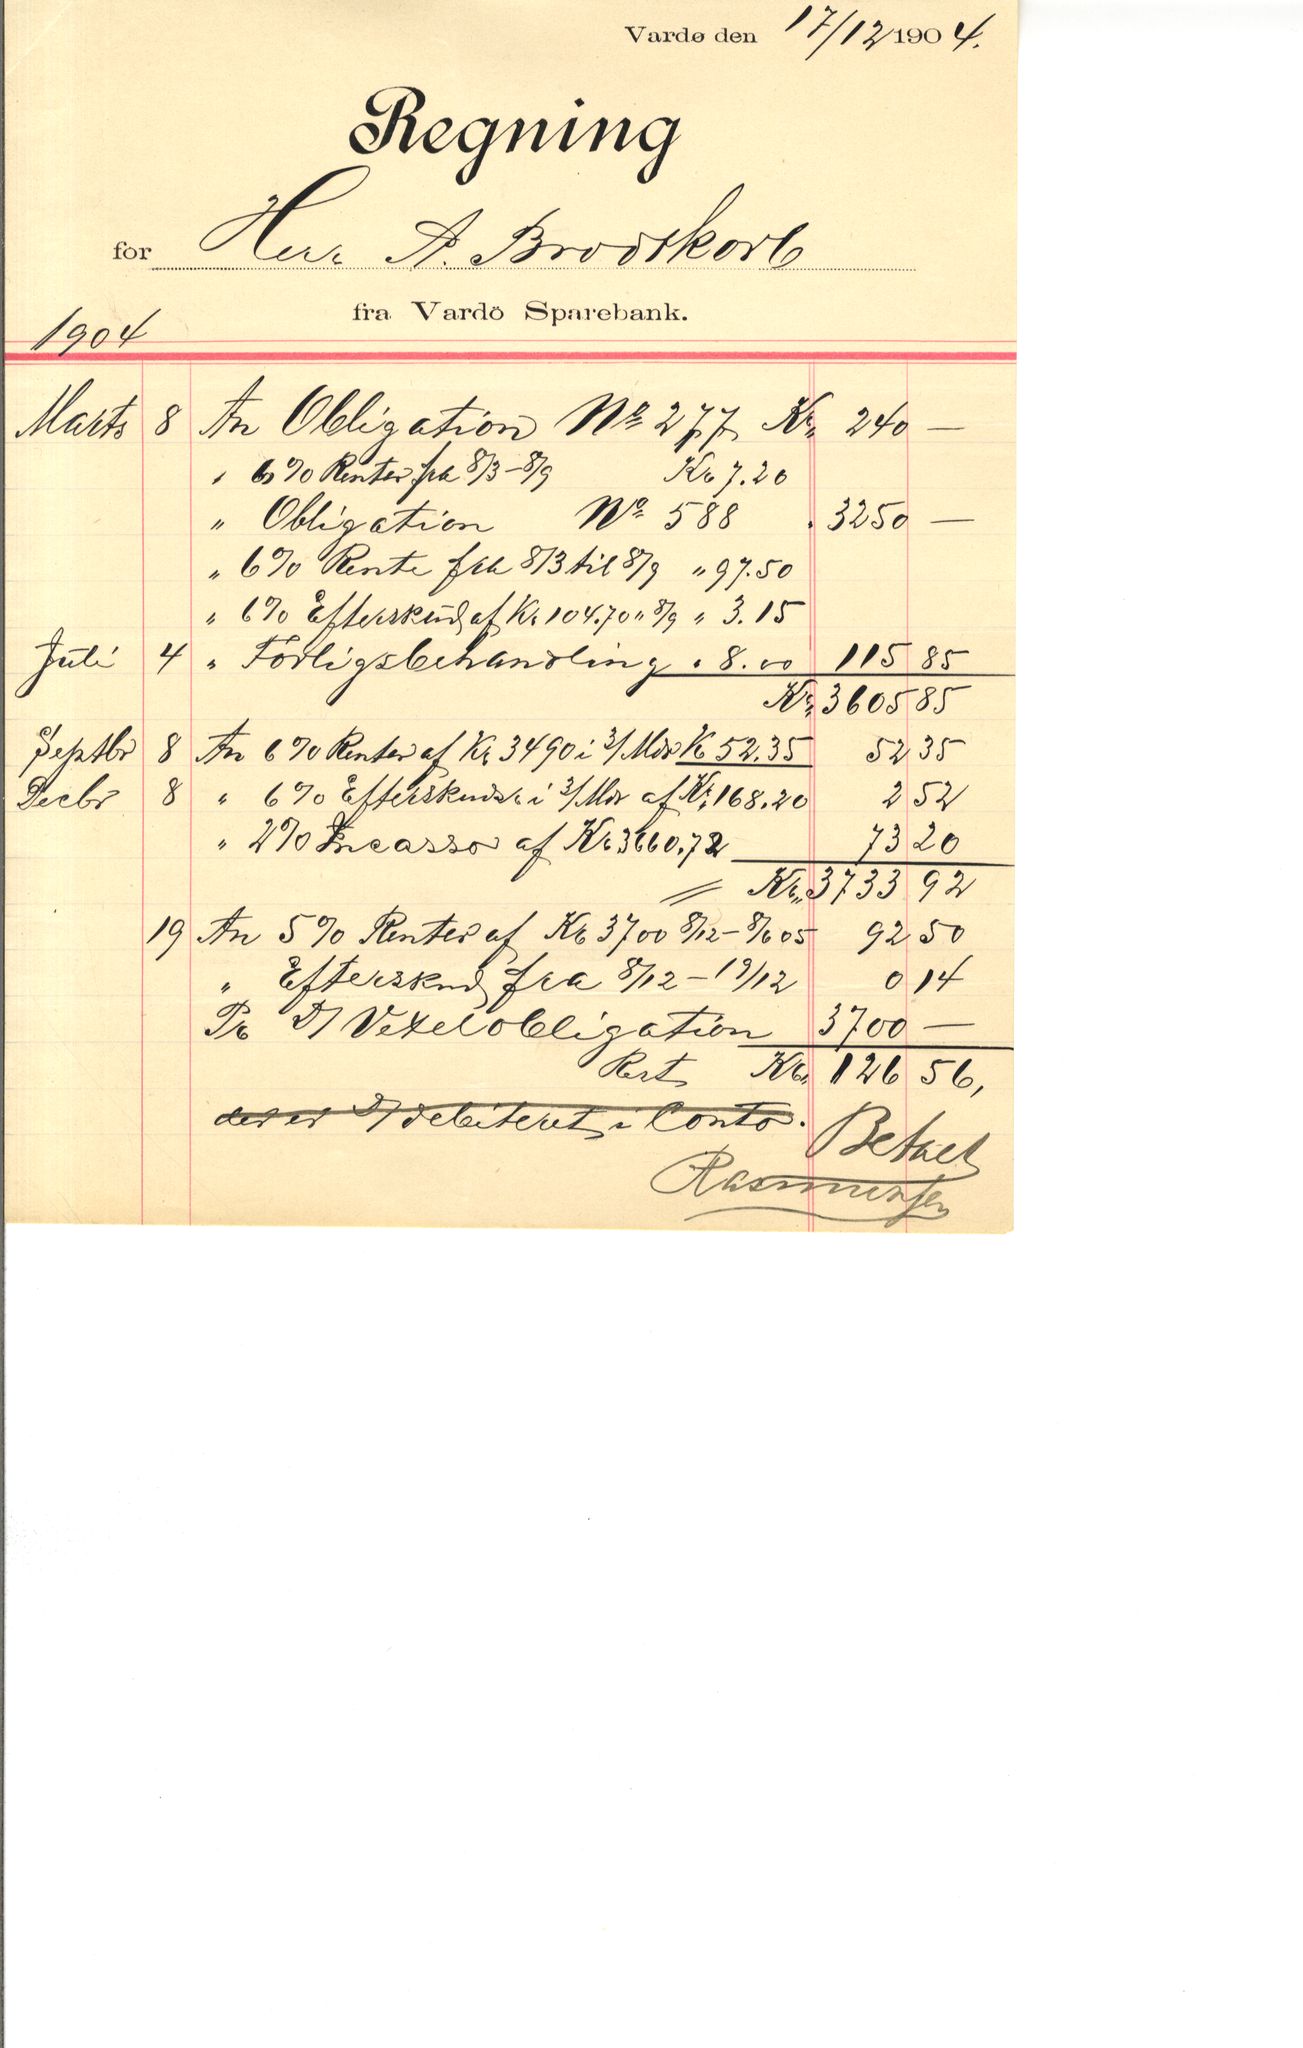 Vardø den 17/12 1904.
Regning
for Herr A. Brodtkorb
fra Vardö Sparebank.
1904
Marts 8 An Obligation No 277 Kr. 240 —
" 6% Renter fra 8/3 - 8/9 Kr 7.20
" Obligation No 588 " 3250 —
" 6% Rente fra 8/3 til 8/9 " 97.50
" 6% Efterskud af Kr. 104.70 " 8/9 " 3.15
Juli 4 " Forligsbehandling " 8.00 115 85
Kr. 3605 85
Septbr 8 An 6% Renter af Kr 3490 i 3/Mdr K 52.35 52 35
Decbr 8 " 6% Efterskudsr i 3/Mdr af Kr. 168.20 2 52
" 2% Incasso af Kr 3660.72 73 20
// Kr. 3733 92
19 An 5% Renter af Kr 3700 8/12 - 8/6 05 92 50
" Efterskud fra 8/12 - 19/12 0 14
Pr D/ Vexelobligation 3700 —
Rest Kr. 126 56,
der er D/ debiteret i Conto.
Betalt
Rasmussen